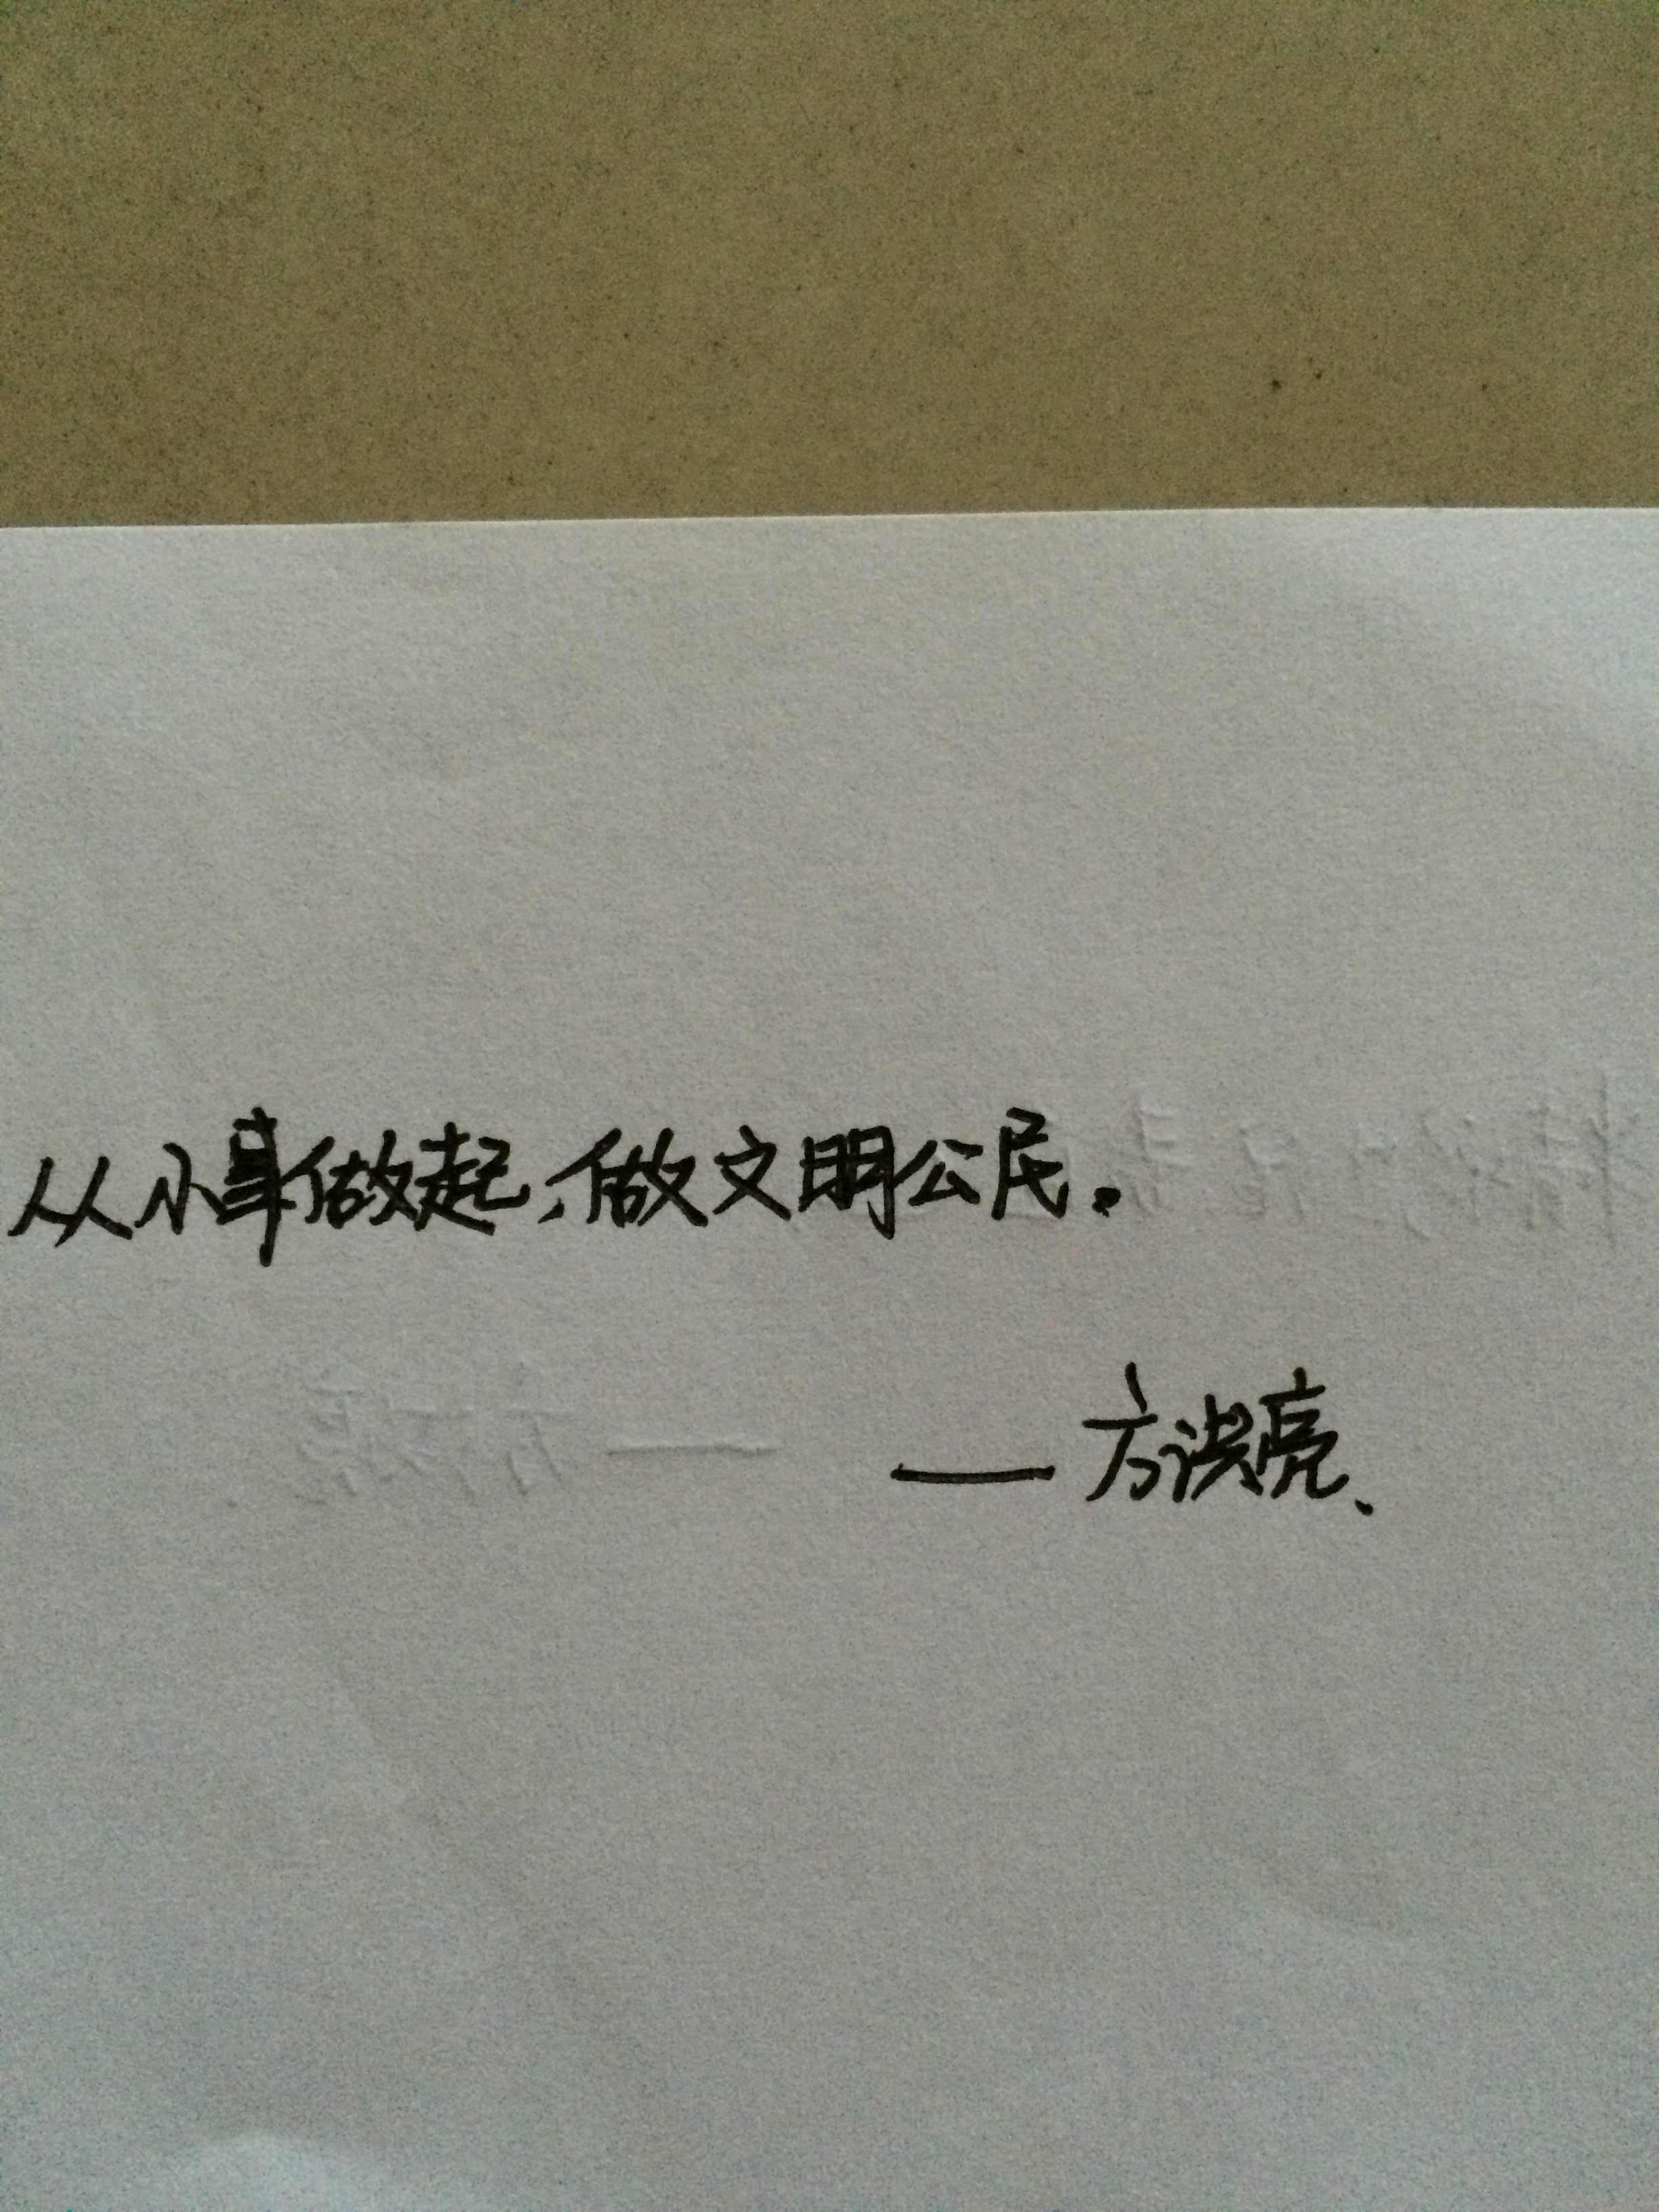 从小事做起，做文明公民。
——方洪亮、